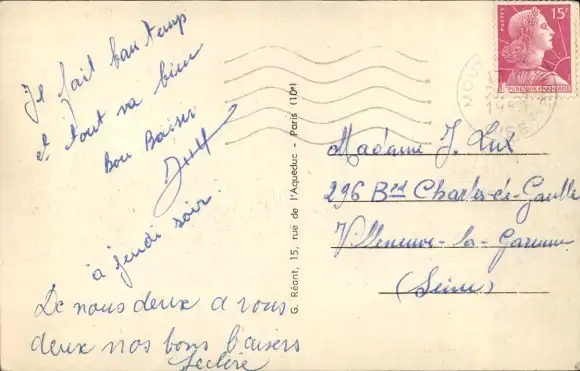 Il fait bau temp
et tout va bien
Bon Baiser
à jeudi soir.
De nous deux a vous
deux nos bons baisers
Leclère
G. Réant, 15, rue de l'Aqueduc - Paris (10e)
POSTES
15F
REPUBLIQUE FRANÇAISE
MOUT
OISE
Madame J. Lux
296 Bd Charles-de-Gaulle
Villeneuve-la-Garenne
(Seine)